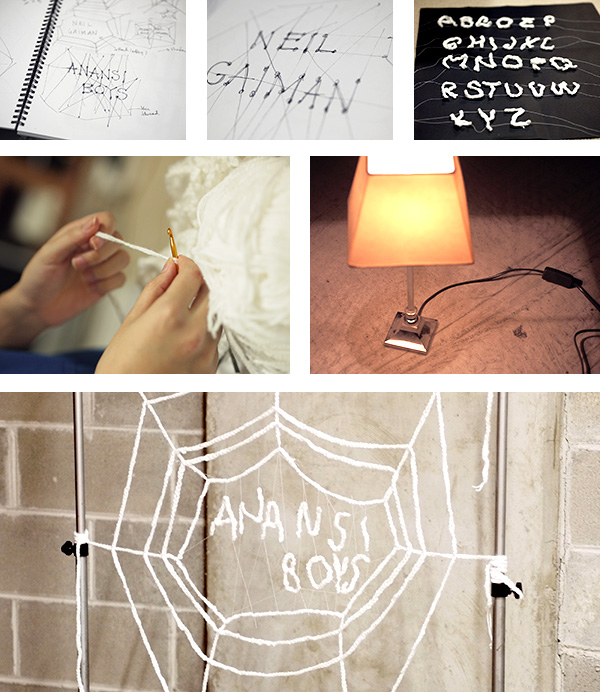 NEIL
GAIMAN
ANANSI
BOYS
NEIL
GAIMAN
ABCDEF
GHIJKL
MNOPQ
RSTUVW
XYZ
ANANSI
BOYS